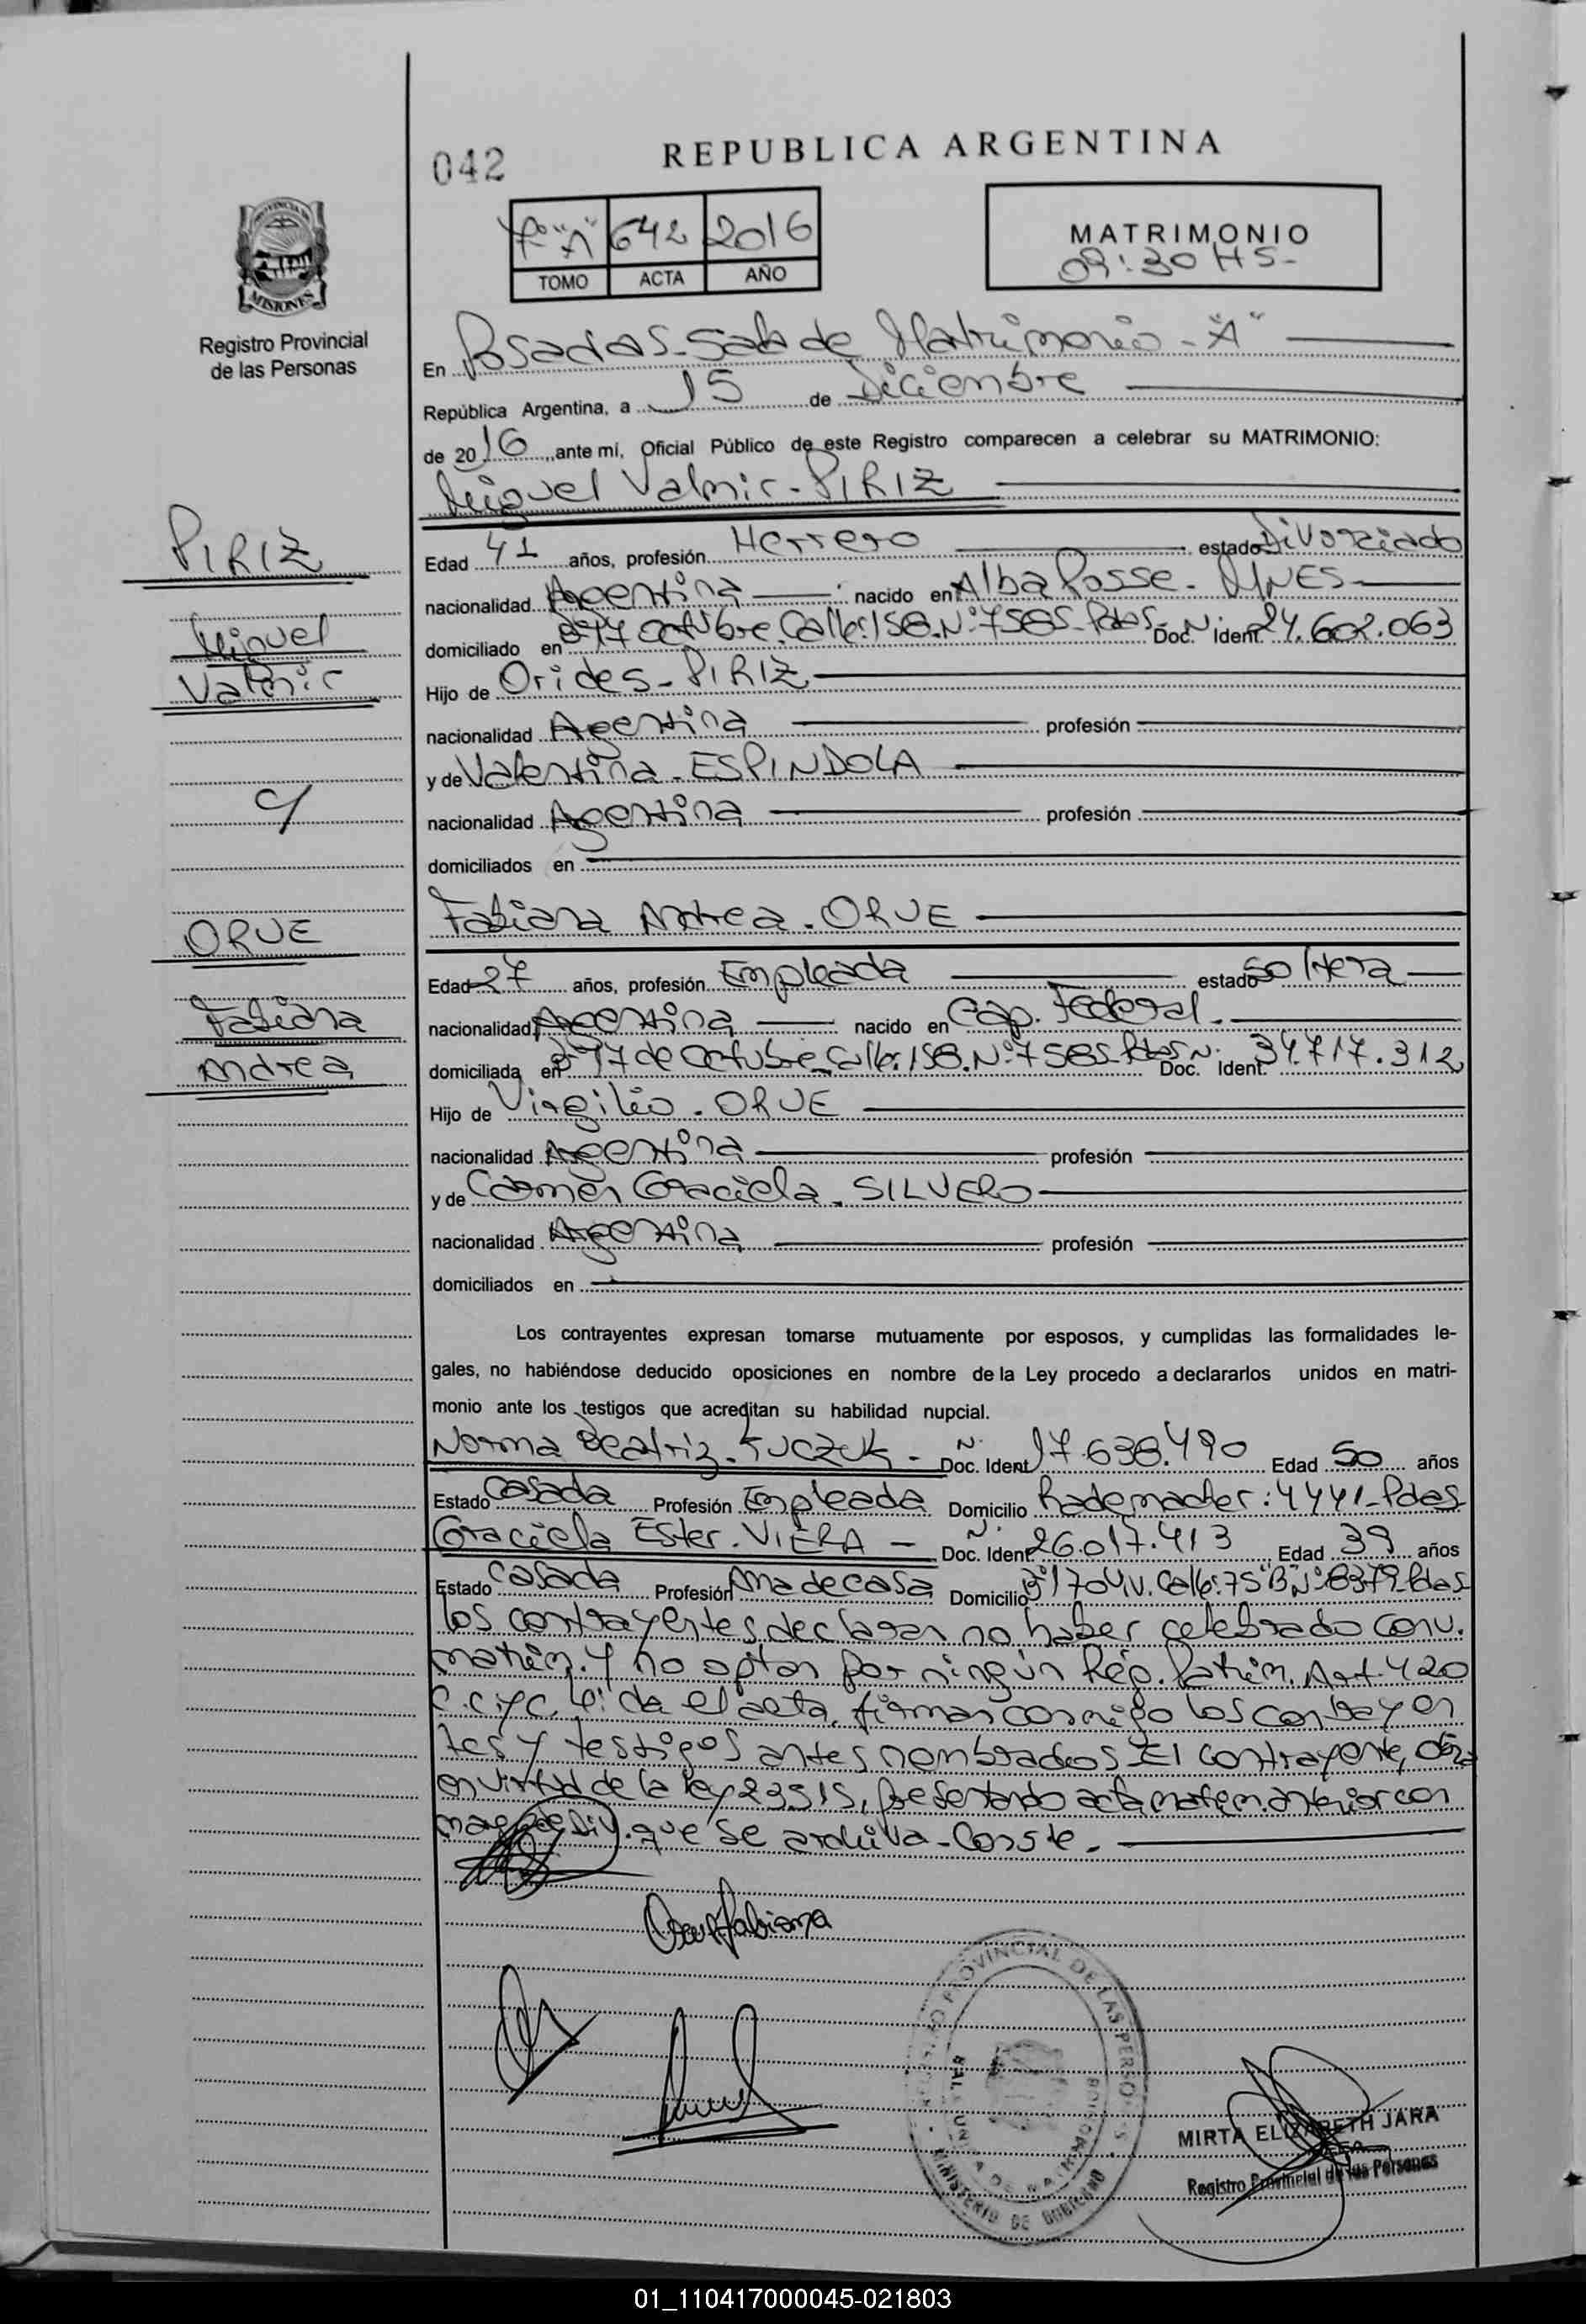 042
REPUBLICA ARGENTINA
Tº "A" 642 2016
TOMO ACTA AÑO
MATRIMONIO
09:30 HS-
MISIONES
Registro Provincial
de las Personas
En Posadas-Sala de Matrimonio-"A"
República Argentina, a 15 de Diciembre
de 2016, ante mi, Oficial Público de este Registro comparecen a celebrar su MATRIMONIO:
Miguel Valmir-PIRIZ
PIRIZ
Miguel
Valmir
Edad 41 años, profesión Herrero estado Divorciado
nacionalidad Argentina nacido en Alba Posse-MNES-
domiciliado en Bº 17 Octubre Calle:158.Nº:7585-Pdas- Doc. Nº Ident. 24.602.063
Hijo de Orides-PIRIZ
nacionalidad Argentina profesión
y de Valentina-ESPINDOLA
nacionalidad Argentina profesión
domiciliados en
c/
Fabiana Andrea.ORUE
ORUE
Fabiana
Andrea
Edad 27 años, profesión Empleada estado Soltera
nacionalidad Argentina nacido en Cap. Federal.
domiciliada en Bº 17 de Octubre-Calle:158.Nº:7585-Pdas Nº Doc. Ident. 34.717.312
Hijo de Virgilio.ORUE
nacionalidad Argentina profesión
y de Carmen Graciela.SILVERO
nacionalidad Argentina profesión
domiciliados en
Los contrayentes expresan tomarse mutuamente por esposos, y cumplidas las formalidades le-
gales, no habiéndose deducido oposiciones en nombre de la Ley procedo a declararlos unidos en matri-
monio ante los testigos que acreditan su habilidad nupcial.
Norma Beatriz. KUCZUK - Nº Doc. Ident. 17.638.490 Edad 50 años
Estado Casada Profesión Empleada Domicilio Rademacher:4441-Pdas
Graciela Ester.VIERA - Nº Doc. Ident. 26.017.413 Edad 39 años
Estado Casada Profesión Ama de casa Domicilio Bº 170 Viv. Calle:75"B"Nº:8379-Pdas
los contrayentes declaran no haber celebrado conv.
matrim. y no optan por ningún Rég. Patrim. Art.420
C.C.yC. Leída el acta, firman conmigo los contrayen
tes y testigos antes nombrados El contrayente, obra
en virtud de la ley 23515, presentando acta matrim. anterior con
marg. de Div. que se archiva-Conste.
Orue Fabiana
REGISTRO PROVINCIAL DE LAS PERSONAS
MINISTERIO DE GOBIERNO
MIRTA ELIZABETH JARA
Registro Provincial de las Personas
01_110417000045-021803